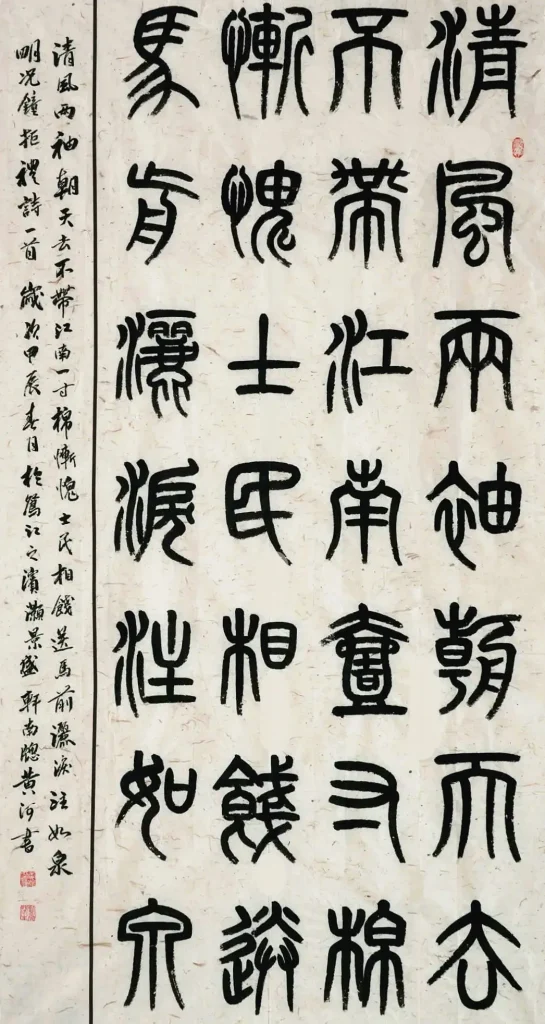 清風兩袖朝天去
不帶江南壹寸棉
慚愧士民相餞送
馬前灑淚注如泉
清風两袖朝天去不帶江南一寸棉慚愧士民相餞送馬前灑淚注如泉
明况鐘拒禮詩一首歲次甲辰春月於鷺江之濱灝景盛軒南牕黃河書